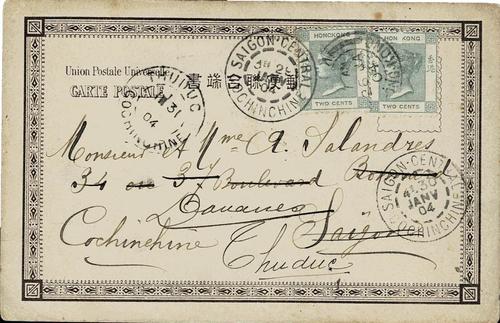 Union Postale Universelle
CARTE POSTALE
書端便郵
HONGKONG
TWO CENTS
HONG KONG
TWO CENTS
SAIGON-CENTRAL
29
JANV
04
COCHINCHINE
THUDUC
31
04
COCHINCHINE
SAIGON-CENTRAL
30
JANV
04
COCHINCHINE
Monsieur A Mme A. Salandres
34 ou 37 Boulevard Bonnard
Douanes
Cochinchine Saïgon
Thuduc